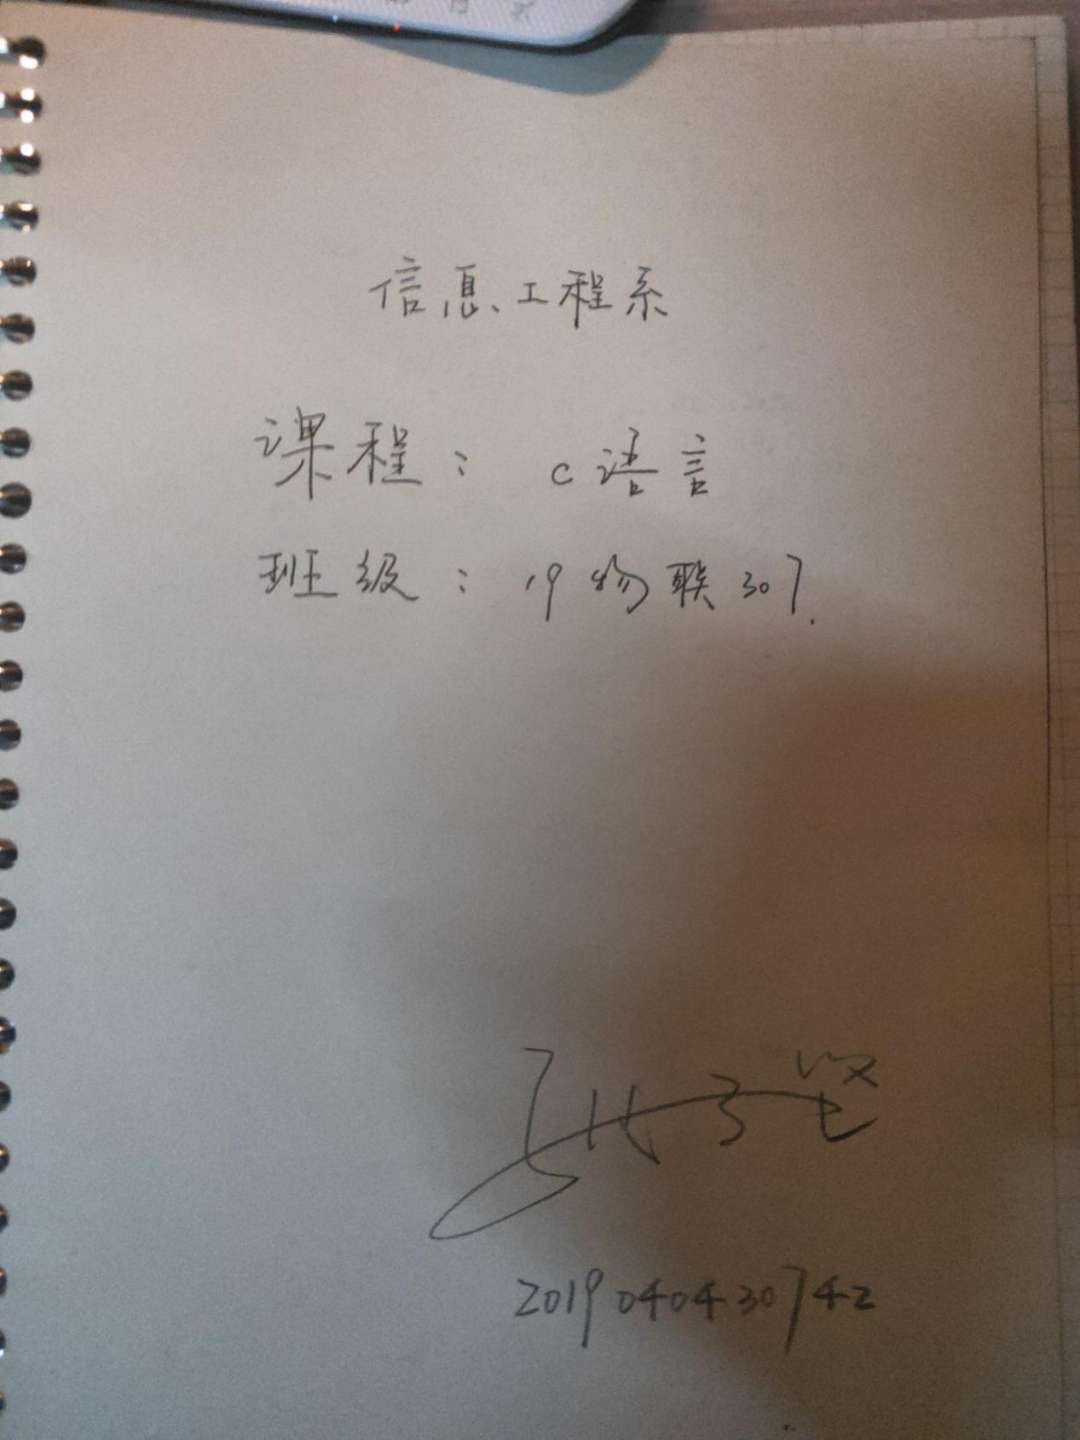 信息工程系
课程： c语言
班级： 19物联307.
2019040430742